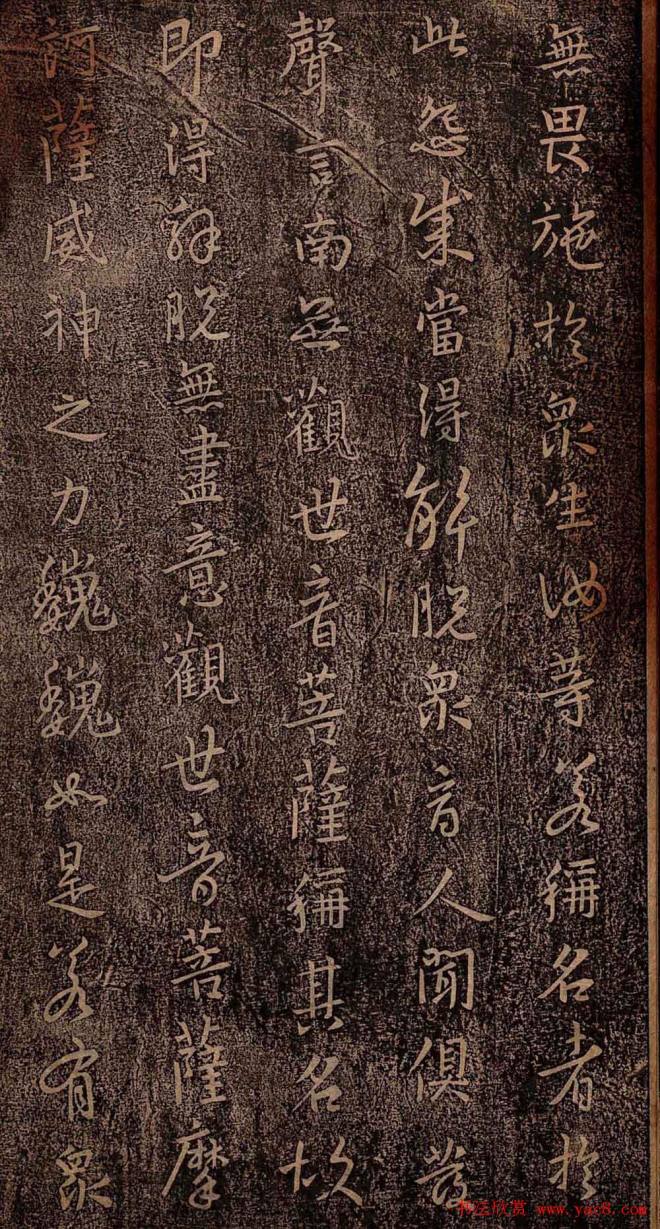 無畏施於眾生汝等若稱名者於
此怨賊當得解脫眾商人聞俱發
聲言南无觀世音菩薩稱其名故
即得解脫無盡意觀世音菩薩摩
訶薩威神之力巍巍如是若有眾
书法欣赏 www.yac8.com